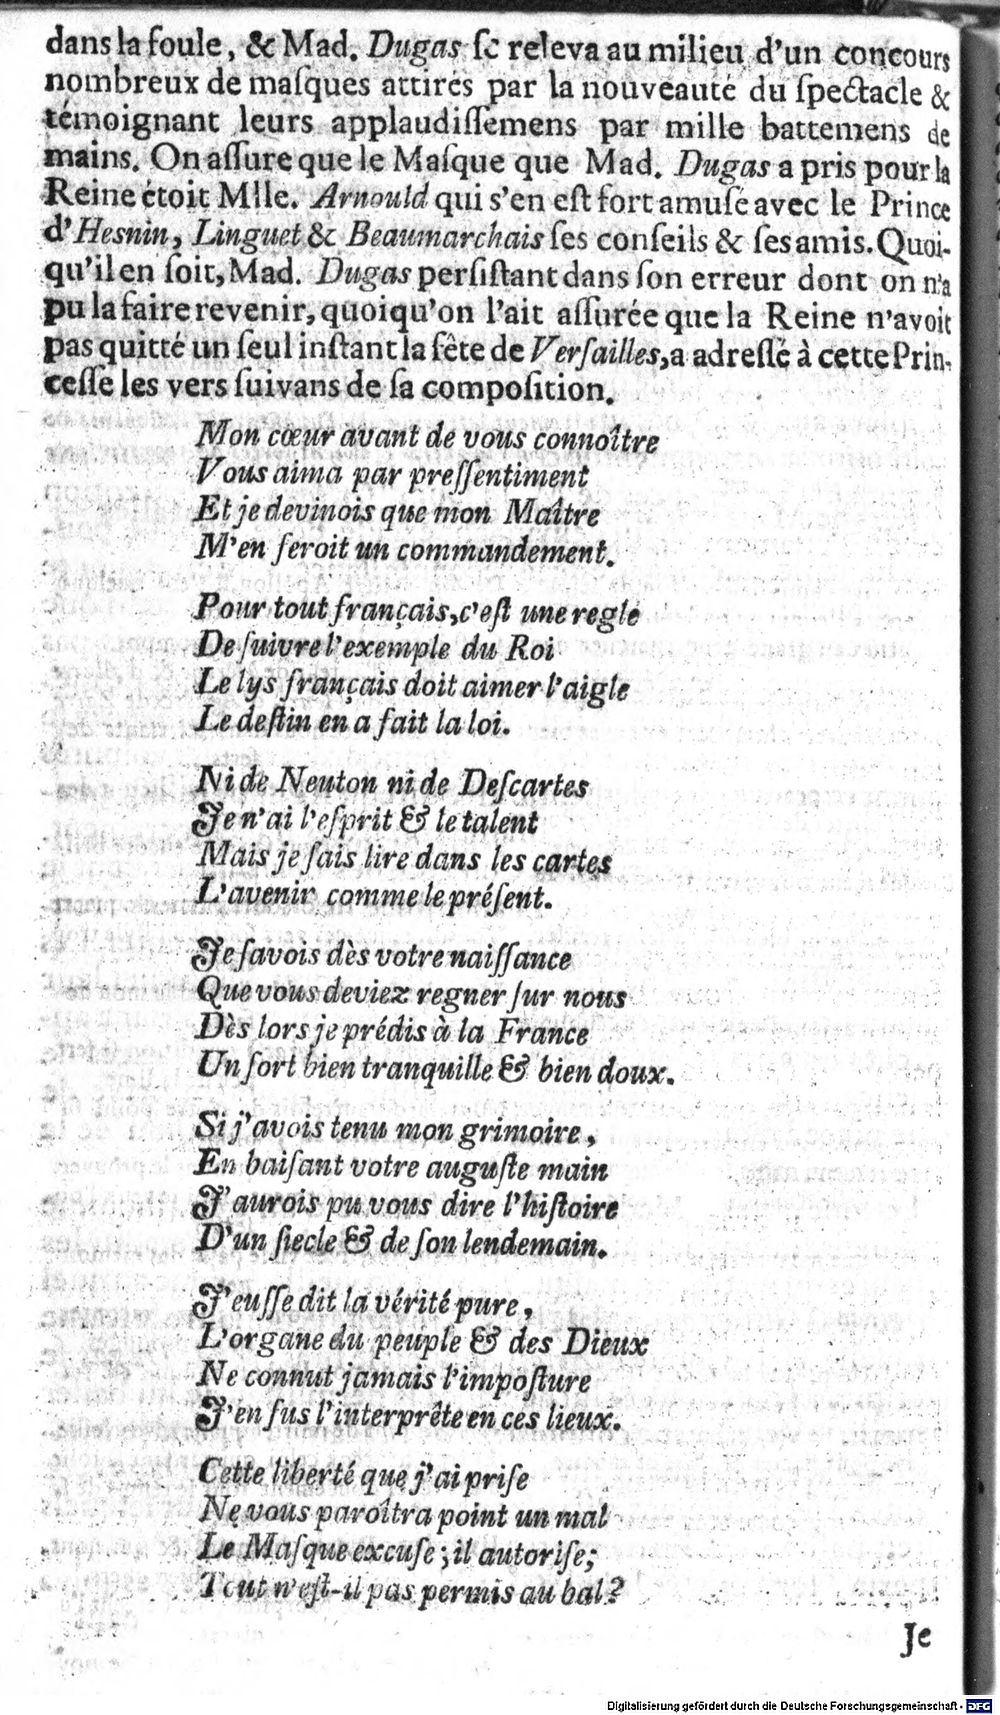 dans la foule, & Mad. Dugas ſe releva au milieu d'un concours
nombreux de maſques attirés par la nouveauté du ſpectacle &
témoignant leurs applaudiſſemens par mille battemens de
mains. On aſſure que le Maſque que Mad. Dugas a pris pour la
Reine étoit Mlle. Arnould qui s'en eſt fort amuſé avec le Prince
d'Hesnin, Linguet & Beaumarchais ſes conſeils & ſes amis. Quoi-
qu'il en ſoit, Mad. Dugas perſiſtant dans ſon erreur dont on n'a
pu la faire revenir, quoiqu'on l'ait aſſurée que la Reine n'avoit
pas quitté un ſeul inſtant la fête de Verſailles, a adreſſé à cette Prin-
ceſſe les vers ſuivans de ſa compoſition.
Mon cœur avant de vous connoître
Vous aima par preſſentiment
Et je devinois que mon Maître
M'en feroit un commandement.
Pour tout français, c'eſt une regle
De ſuivre l'exemple du Roi
Le lys français doit aimer l'aigle
Le deſtin en a fait la loi.
Ni de Neuton ni de Deſcartes
Je n'ai l'eſprit & le talent
Mais je ſais lire dans les cartes
L'avenir comme le préſent.
Je ſavois dès votre naiſſance
Que vous deviez regner ſur nous
Dès lors je prédis à la France
Un ſort bien tranquille & bien doux.
Si j'avois tenu mon grimoire,
En baiſant votre auguſte main
J'aurois pu vous dire l'hiſtoire
D'un ſiecle & de ſon lendemain.
J'euſſe dit la vérité pure,
L'organe du peuple & des Dieux
Ne connut jamais l'impoſture
J'en fus l'interprête en ces lieux.
Cette liberté que j'ai priſe
Ne vous paroîtra point un mal
Le Maſque excuſe; il autoriſe;
Tout n'eſt-il pas permis au bal?
Je
Digitalisierung gefördert durch die Deutsche Forschungsgemeinschaft - DFG